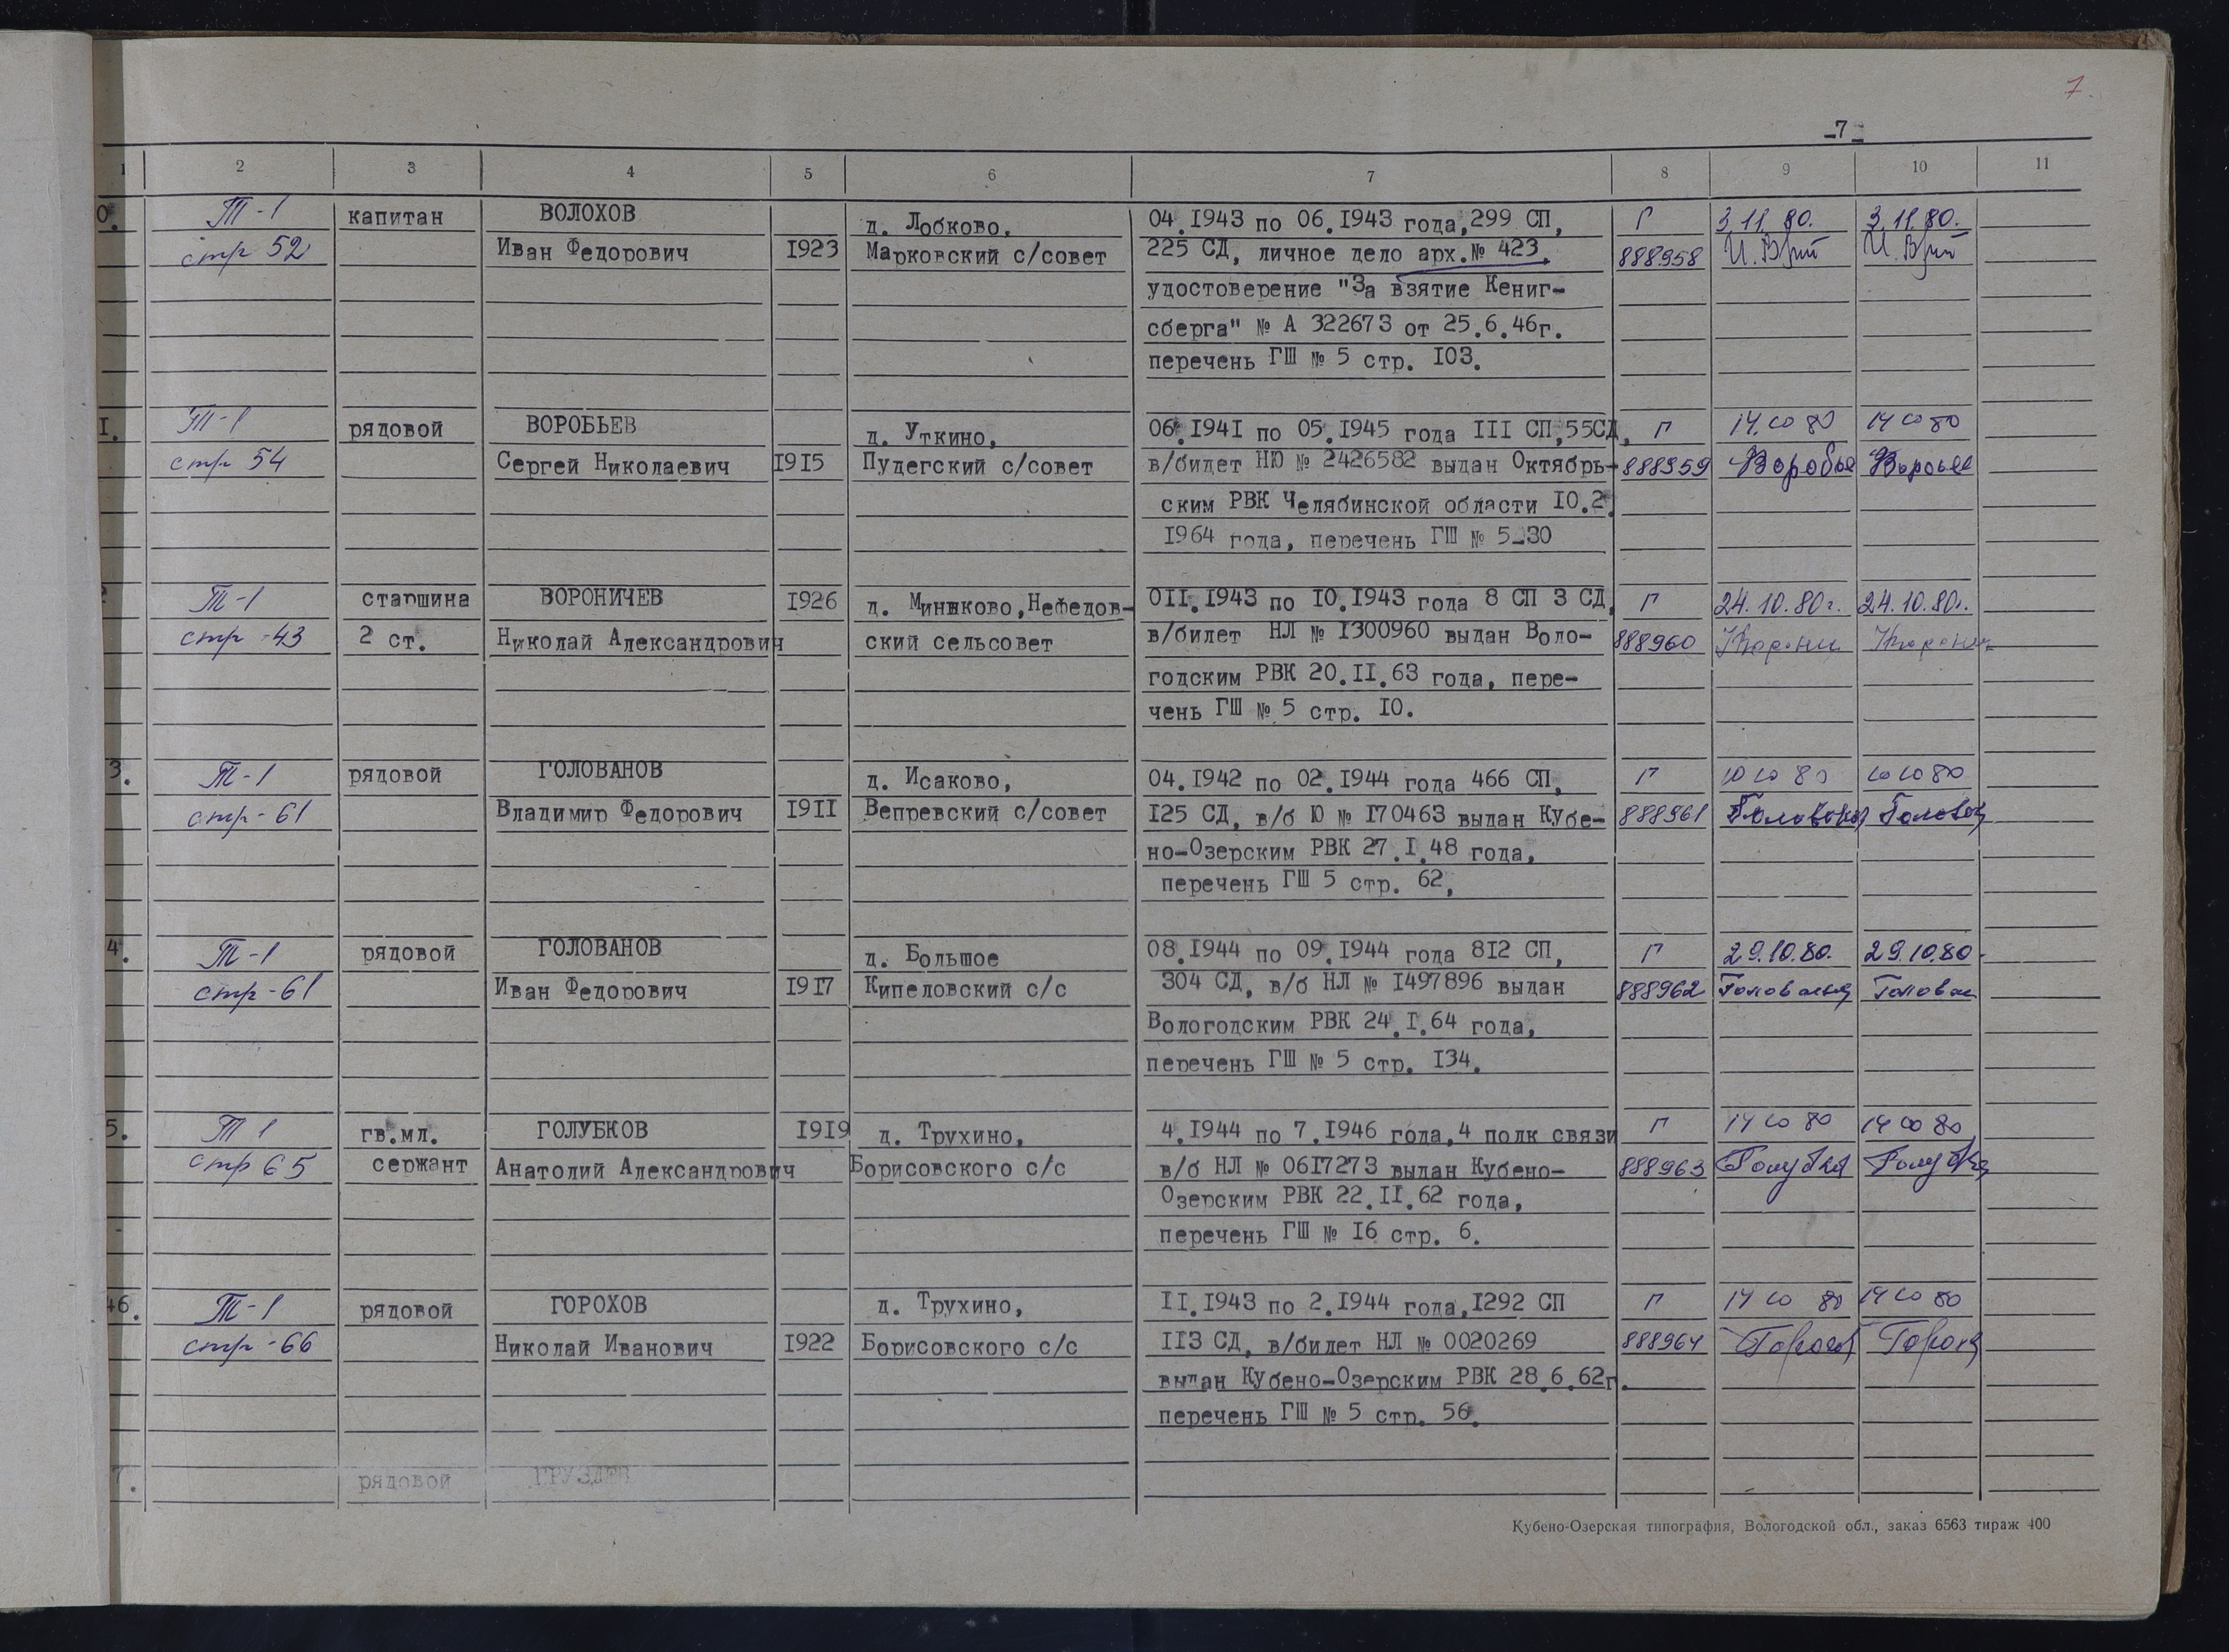 7.
-7-
1 2 3 4 5 6 7 8 9 10 11
0. Т-1 капитан ВОЛОХОВ д. Лобково, 04.1943 по 06.1943 года,299 СП, Г 3.11.80. 3.11.80.
стр 52 Иван Федорович 1923 Марковский с/совет 225 СД, личное дело арх.№ 423, 888958
удостоверение "За взятие Кениг-
сберга" № А 322673 от 25.6.46г.
перечень ГШ № 5 стр. I03.
I. Т-1 рядовой ВОРОБЬЕВ д. Уткино, 06.I94I по 05.I945 года III СП,55СД, Г 14.10 80 14 10 80
стр 54 Сергей Николаевич I9I5 Пудегский с/совет в/билет НЮ № 2426582 выдан Октябрь- 888959 Воробье
ским РВК Челябинской области I0.2.
I964 года, перечень ГШ № 5-30
2 Т-1 старшина ВОРОНИЧЕВ I926 д. Миншково,Нефедов- 0II.I943 по I0.I943 года 8 СП 3 СД, Г 24.10.80г. 24.10.80г.
стр -43 2 ст. Николай Александрович ский сельсовет в/билет НЛ № I300960 выдан Воло- 888960
годским РВК 20.II.63 года, пере-
чень ГШ № 5 стр. I0.
3. Т-1 рядовой ГОЛОВАНОВ д. Исаково, 04.I942 по 02.I944 года 466 СП, Г 10 10 80 10 10 80
стр-61 Владимир Федорович I9II Вепревский с/совет I25 СД, в/б Ю № I70463 выдан Кубе- 888961
но-Озерским РВК 27.I.48 года,
перечень ГШ 5 стр. 62,
4. Т-1 рядовой ГОЛОВАНОВ д. Большое 08.I944 по 09.I944 года 8I2 СП, Г 29.10.80. 29.10.80.
стр-61 Иван Федорович I9I7 Кипеловский с/с 304 СД, в/б НЛ № I497896 выдан 888962 Голован
Вологодским РВК 24.I.64 года,
перечень ГШ № 5 стр. I34.
5. Т 1 гв.мл. ГОЛУБКОВ I9I9 д. Трухино, 4.I944 по 7.I946 года,4 полк связи Г 14 10 80 14 10 80
стр 65 сержант Анатолий Александрович Борисовского с/с в/б НЛ № 06I7273 выдан Кубено- 888963
Озерским РВК 22.II.62 года,
перечень ГШ № I6 стр. 6.
46. Т-1 рядовой ГОРОХОВ д. Трухино, II.I943 по 2.I944 года,I292 СП Г 14 10 80 14 10 80
стр-66 Николай Иванович I922 Борисовского с/с II3 СД, в/билет НЛ № 0020269 888964
выдан Кубено-Озерским РВК 28.6.62г.
перечень ГШ № 5 стр. 56.
7. рядовой ГРУЗДЕВ
Кубено-Озерская типография, Вологодской обл., заказ 6563 тираж 400